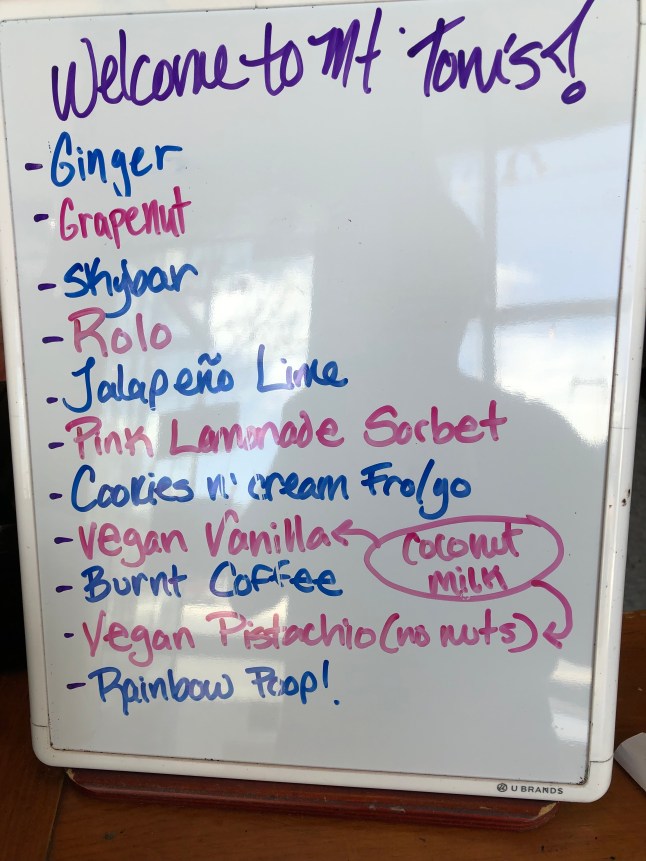 Welcome to Mt. Tom's!
- Ginger
- Grapenut
- Skybar
- Rolo
- Jalapeño Lime
- Pink Lamonade Sorbet
- Cookies n' cream Fro/go
- Vegan Vanilla
coconut
milk
- Burnt Coffee
- Vegan Pistachio (no nuts)
- Rainbow Poop!
U BRANDS